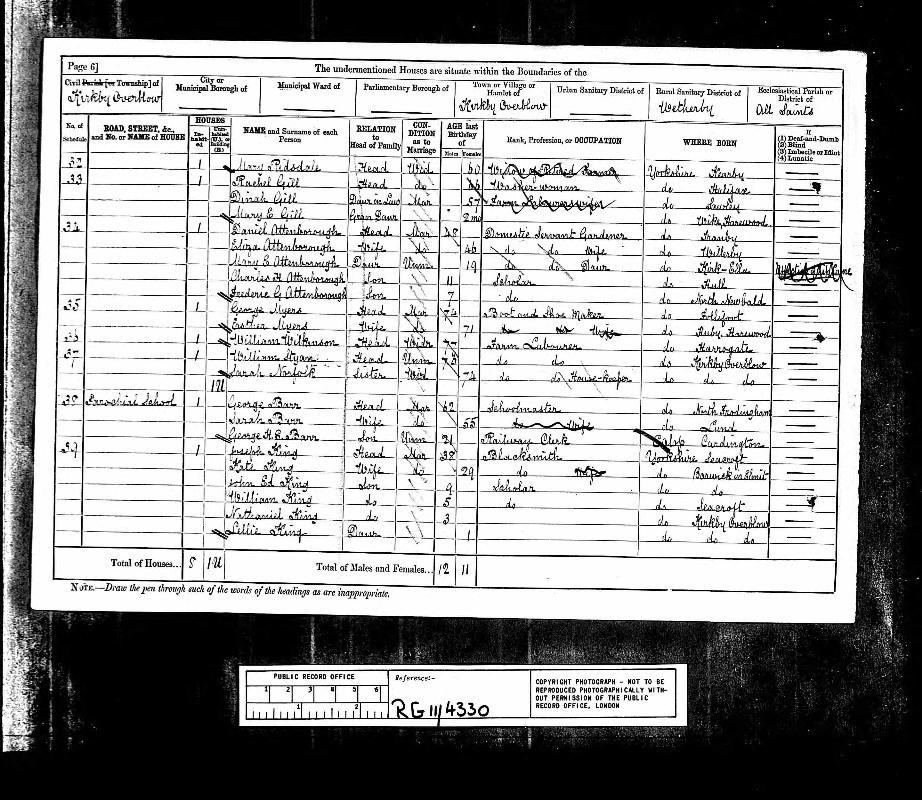 Page 6]
The undermentioned Houses are situate within the Boundaries of the
Civil Parish [or Township] of
City or Municipal Borough of
Municipal Ward of
Parliamentary Borough of
Town or Village or Hamlet of
Urban Sanitary District of
Rural Sanitary District of
Ecclesiastical Parish or District of
Kirkby Overblow
Kirkby Overblow
Wetherby
All Saints
No. of Schedule
ROAD, STREET, &c., and No. or NAME of HOUSE
HOUSES
In-habit-ed
Unin-habited (U.), or Building (B.)
NAME and Surname of each Person
RELATION to Head of Family
CON-DITION as to Marriage
AGE last Birthday of
Males
Females
Rank, Profession, or OCCUPATION
WHERE BORN
If
(1) Deaf-and-Dumb
(2) Blind
(3) Imbecile or Idiot
(4) Lunatic
32 1 Mary Ridsdale Head Wid 60 Widow of Retired Yorkshire Kearby
33 1 Rachel Gill Head do 66 Washer-woman do Halifax
Dinah Gill Daur in Law Mar 57 Farm Labourers wife do Sawley
Mary E. Gill Gran Daur 2mo do Wike, Harewood
34 1 Daniel Attenborough Head Mar 48 Domestic Servant Gardener do
Eliza Attenborough Wife do 46 do do Wife do Willerby
Mary E Attenborough Daur Unm 19 do do Daur do Kirk-Ella
Charles H Attenborough Son 11 Scholar do Hull
Frederic G Attenborough Son 7 do do North Newbald
35 1 George Myers Head Mar 74 Boot and Shoe Maker do Follifoot
Esther Myers Wife do 71 do do Wife do Huby, Harewood
36 1 William Wilkinson Head Widr 77 Farm Labourer do Harrogate
37 1 William Styan Head Unm 73 do do do Kirkby Overblow
Sarah Norfolk Sister Wid 74 do do House-keeper do do do
1U
38 Parochial School 1 George Barr Head Mar 62 Schoolmaster do North Frodingham
Sarah Barr Wife do 55 do Wife do Lund
George H. E. Barr Son Unm 21 Railway Clerk Salop Cardington
39 1 Joseph King Head Mar 38 Blacksmith Yorkshire Seacroft
Kate King Wife do 29 do Wife do Barwick in Elmit
John Ed King Son 9 Scholar do do
William King do 5 do do Seacroft
Nathaniel King do 3 do Kirkby Overblow
Lillie King Daur 1 do do do
Total of Houses... 8 1U
Total of Males and Females... 12 11
NOTE.—Draw the pen through such of the words of the headings as are inappropriate.
PUBLIC RECORD OFFICE
1 2 3 4 5 6
1 2
Reference:-
RG 11/4330
COPYRIGHT PHOTOGRAPH - NOT TO BE
REPRODUCED PHOTOGRAPHICALLY WITH-
OUT PERMISSION OF THE PUBLIC
RECORD OFFICE, LONDON